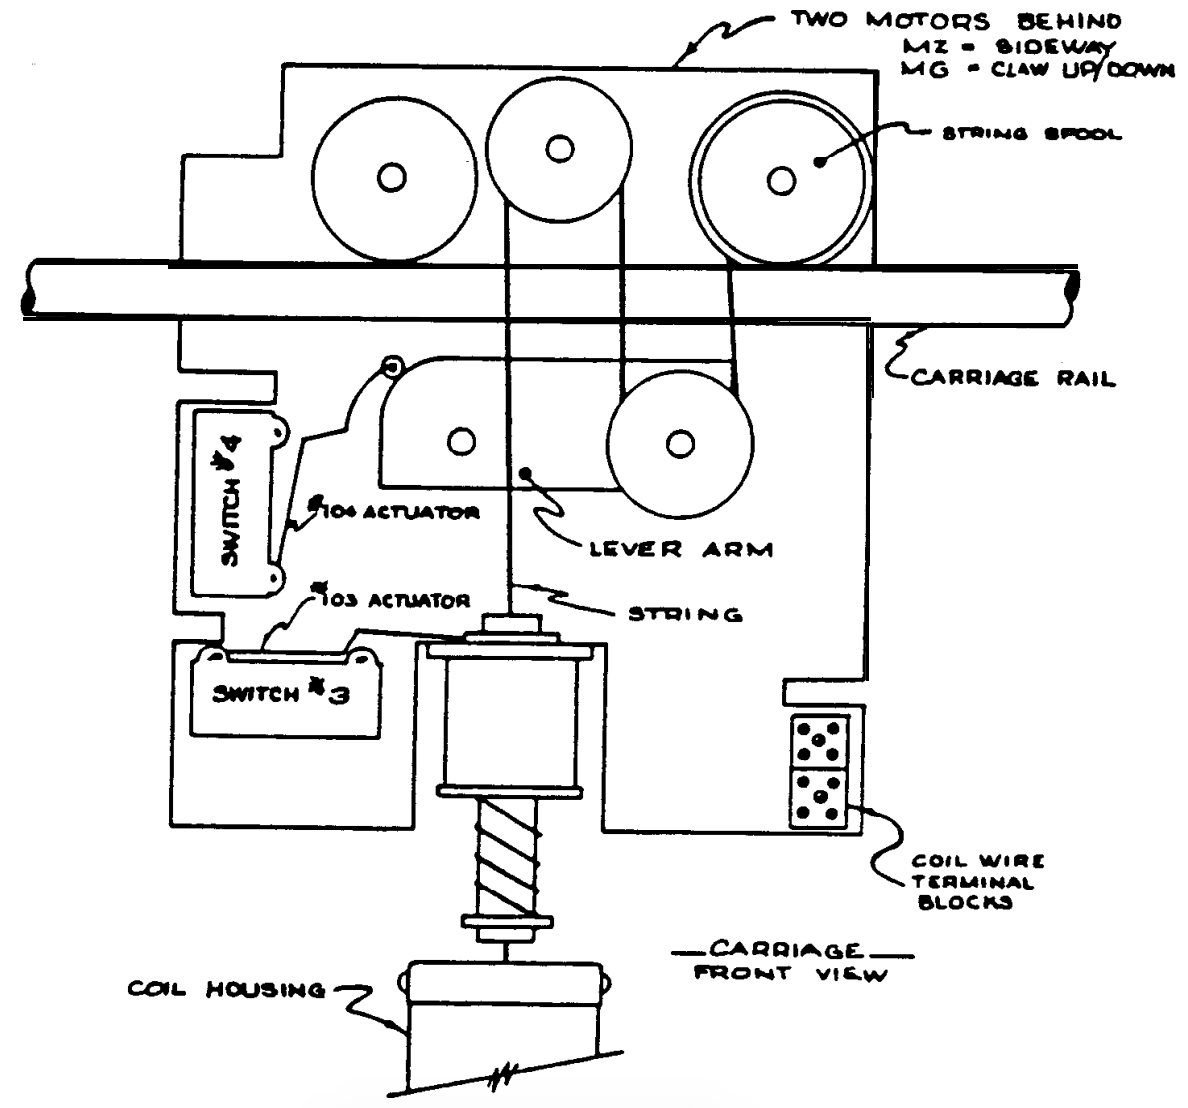 TWO MOTORS BEHIND
MZ = SIDEWAY
MG = CLAW UP/DOWN
STRING SPOOL
CARRIAGE RAIL
SWITCH #4
#104 ACTUATOR
LEVER ARM
#103 ACTUATOR
STRING
SWITCH #3
COIL WIRE
TERMINAL
BLOCKS
CARRIAGE
FRONT VIEW
COIL HOUSING